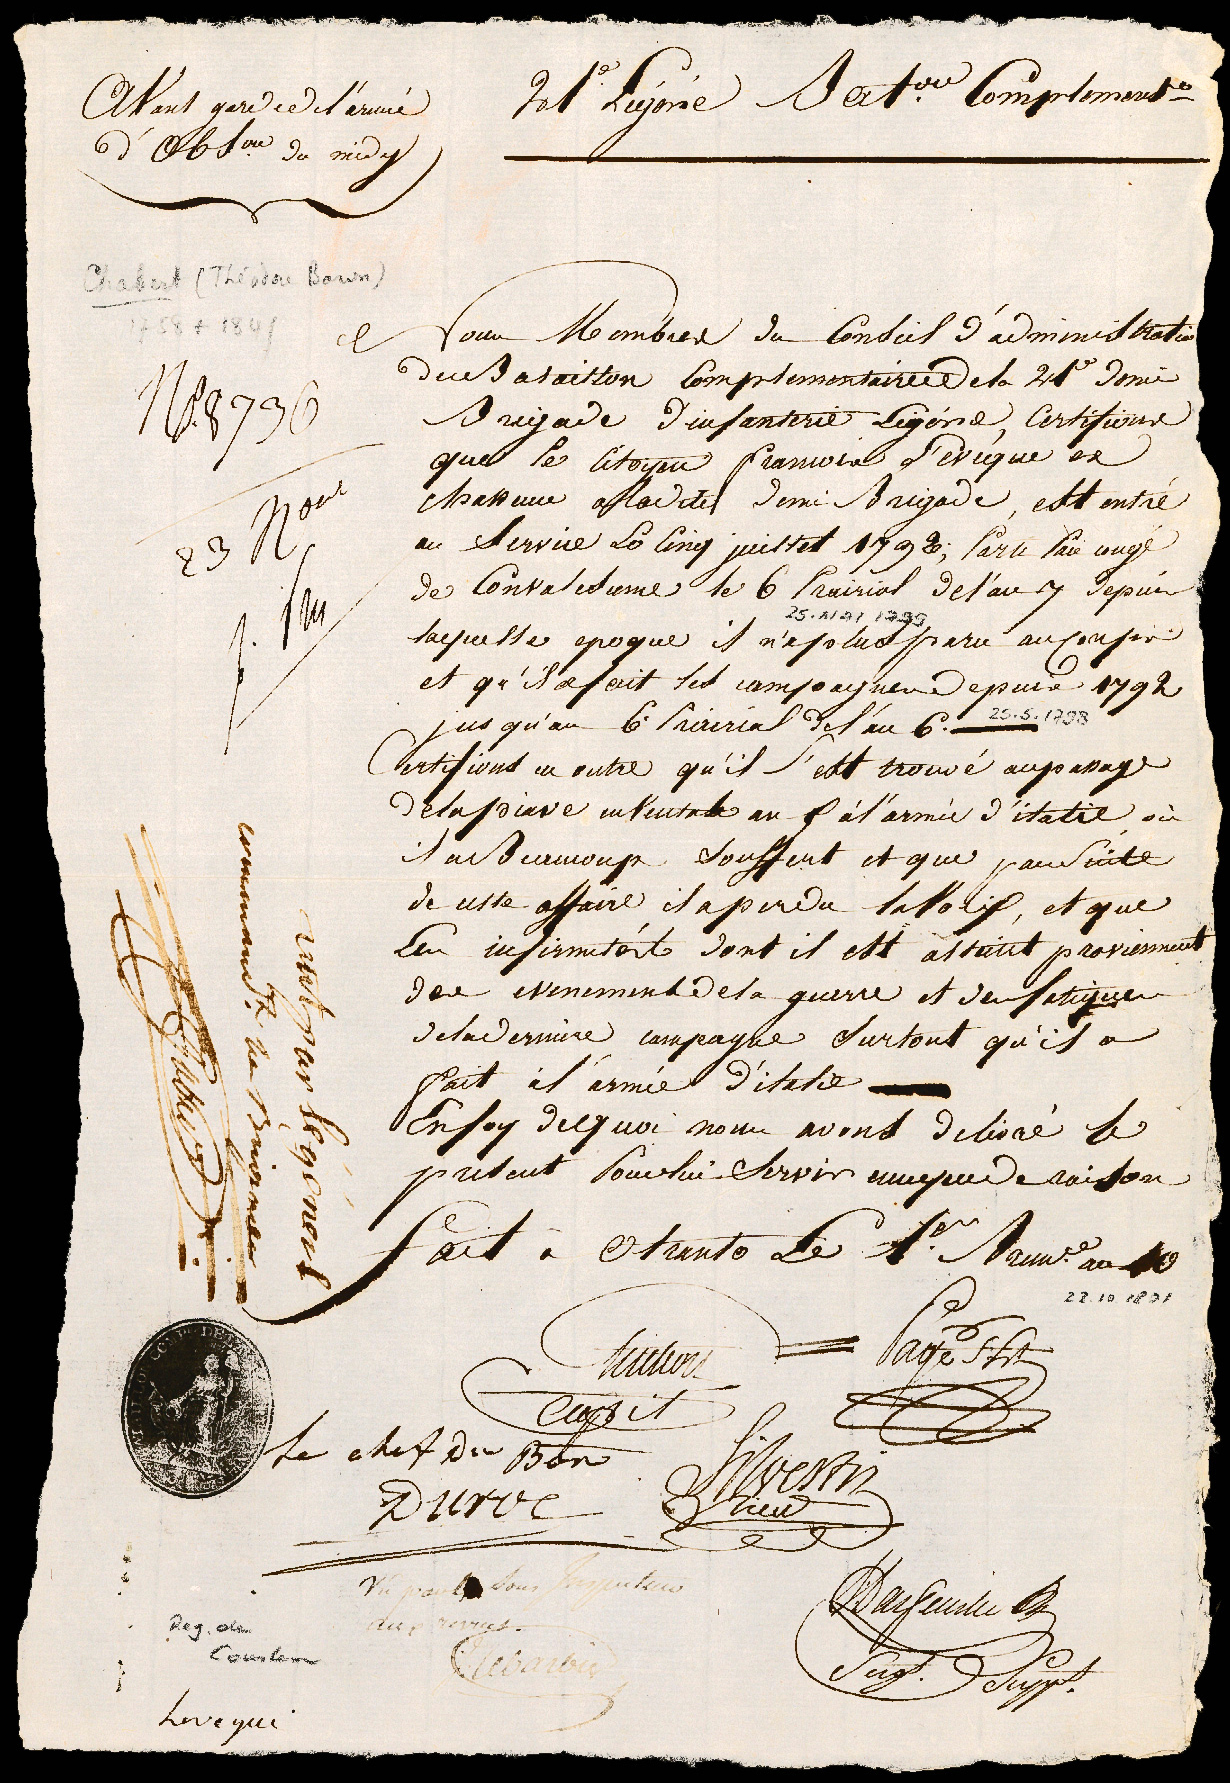 AVant garde de l'armée
d'Obs.on du midy
21e Légère Bat.on Complement.re
Chabert (Théodore Baron)
1758 + 1845
Nous Membres du Conseil d'administration
du Bataillon Complementaire de la 21e demi
Brigade d'infanterie Légère, Certifions
que le Citoyen francois L'evêque ex
chasseur a Ladite demi Brigade, est entré
au Service Le Cinq juillet 1792; Parti Par congé
de Convalescence le 6 Prairial de l'an 7 depuis
25. MAI 1799
laquelle epoque il n'a plus paru au Corps
et qu'il a fait les campagnes depuis 1792
jusqu'au 6 Prairial de l'an 6.
25.5.1798
Certifions en outre qu'il s'est trouvé au passage
de la piave en Ventose an 5 à l'armée d'italie où
il a Beaucoup souffert et que par suite
de cette affaire il a perdu la Voix, et que
Les infirmités dont il est atteint proviennent
des evenements de la guerre et des fatigues
de la derniere campagne surtout qu'il a
fait à l'armée d'italie
En foy de quoi nous avons delivré le
present Pour lui Servir en ce que de raison
fait à Otrante Le 1er Brum.re an 10
22.10.1801
No. 8736
23
Vu par le général
command.t la Brigade
Chabert
Page Sgt
Le chef du Bon
Silvestri
Vu par le Sous Inspecteur
aux revues
Reg. de
Levéqué
Sergt. Suppt.